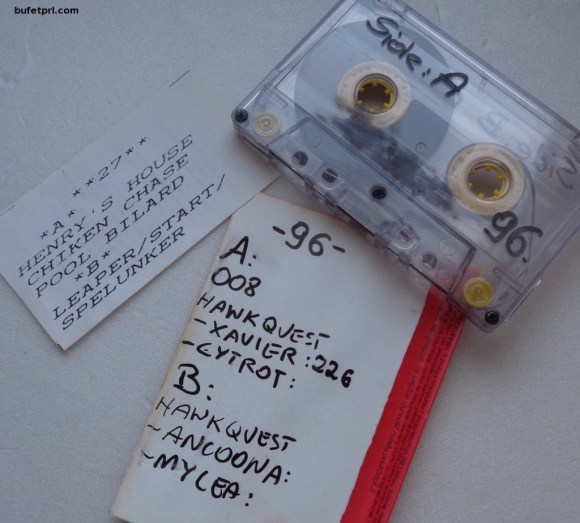 bufetprl.com
**27**
*A*
HENRY'S HOUSE
CHIKEN CHASE
POOL BILARD
*B*
LEAPER/START/
SPELUNKER
Side: A
96.
-96-
A:
008
HAWKQUEST
-XAVIER:226
-CYTROT:
B:
HAWKQUEST
-ANCOONA:
-MYLEA: